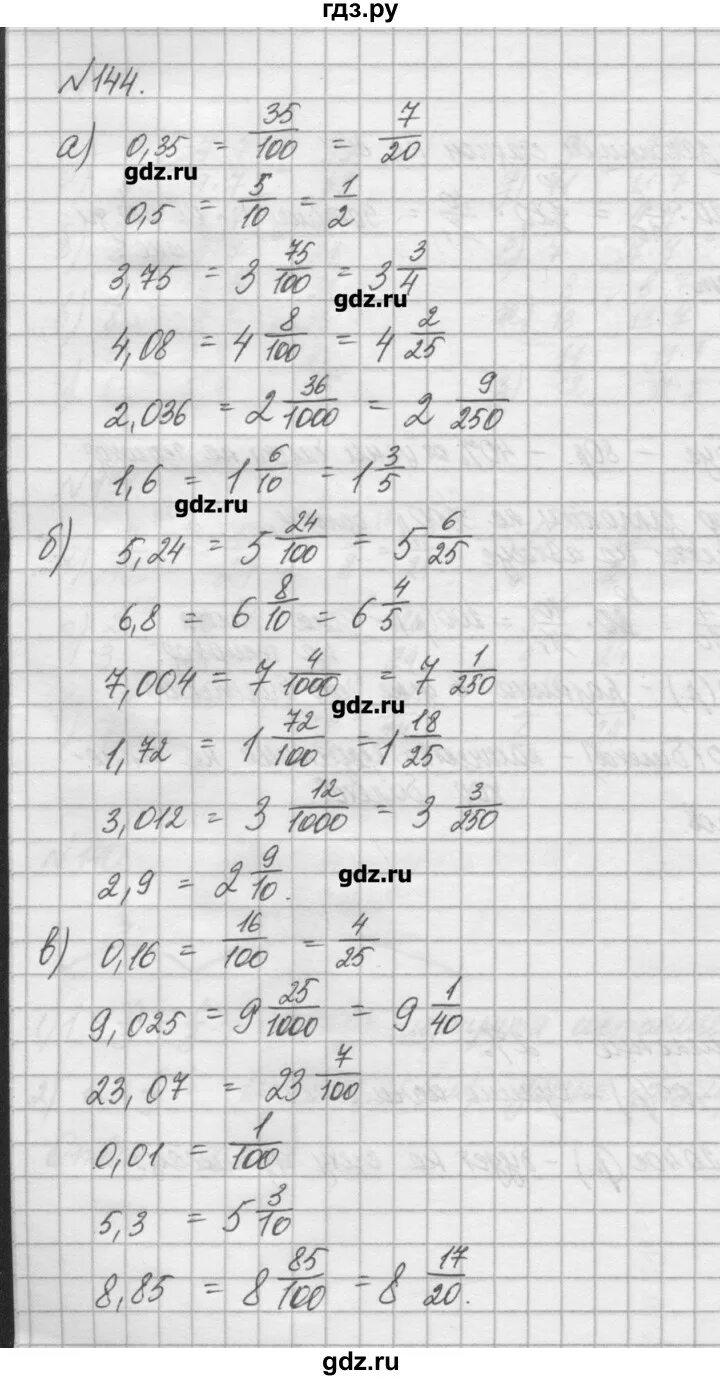 гдз.ру
№144.
а) 0,35 = 35/100 = 7/20
gdz.ru
0,5 = 5/10 = 1/2
3,75 = 3 75/100 = 3 3/4
gdz.ru
4,08 = 4 8/100 = 4 2/25
2,036 = 2 36/1000 = 2 9/250
1,6 = 1 6/10 = 1 3/5
gdz.ru
б) 5,24 = 5 24/100 = 5 6/25
6,8 = 6 8/10 = 6 4/5
7,004 = 7 4/1000 = 7 1/250
gdz.ru
1,72 = 1 72/100 = 1 18/25
3,012 = 3 12/1000 = 3 3/250
2,9 = 2 9/10.
gdz.ru
в) 0,16 = 16/100 = 4/25
9,025 = 9 25/1000 = 9 1/40
23,07 = 23 7/100
0,01 = 1/100
5,3 = 5 3/10
8,85 = 8 85/100 = 8 17/20.
gdz.ru